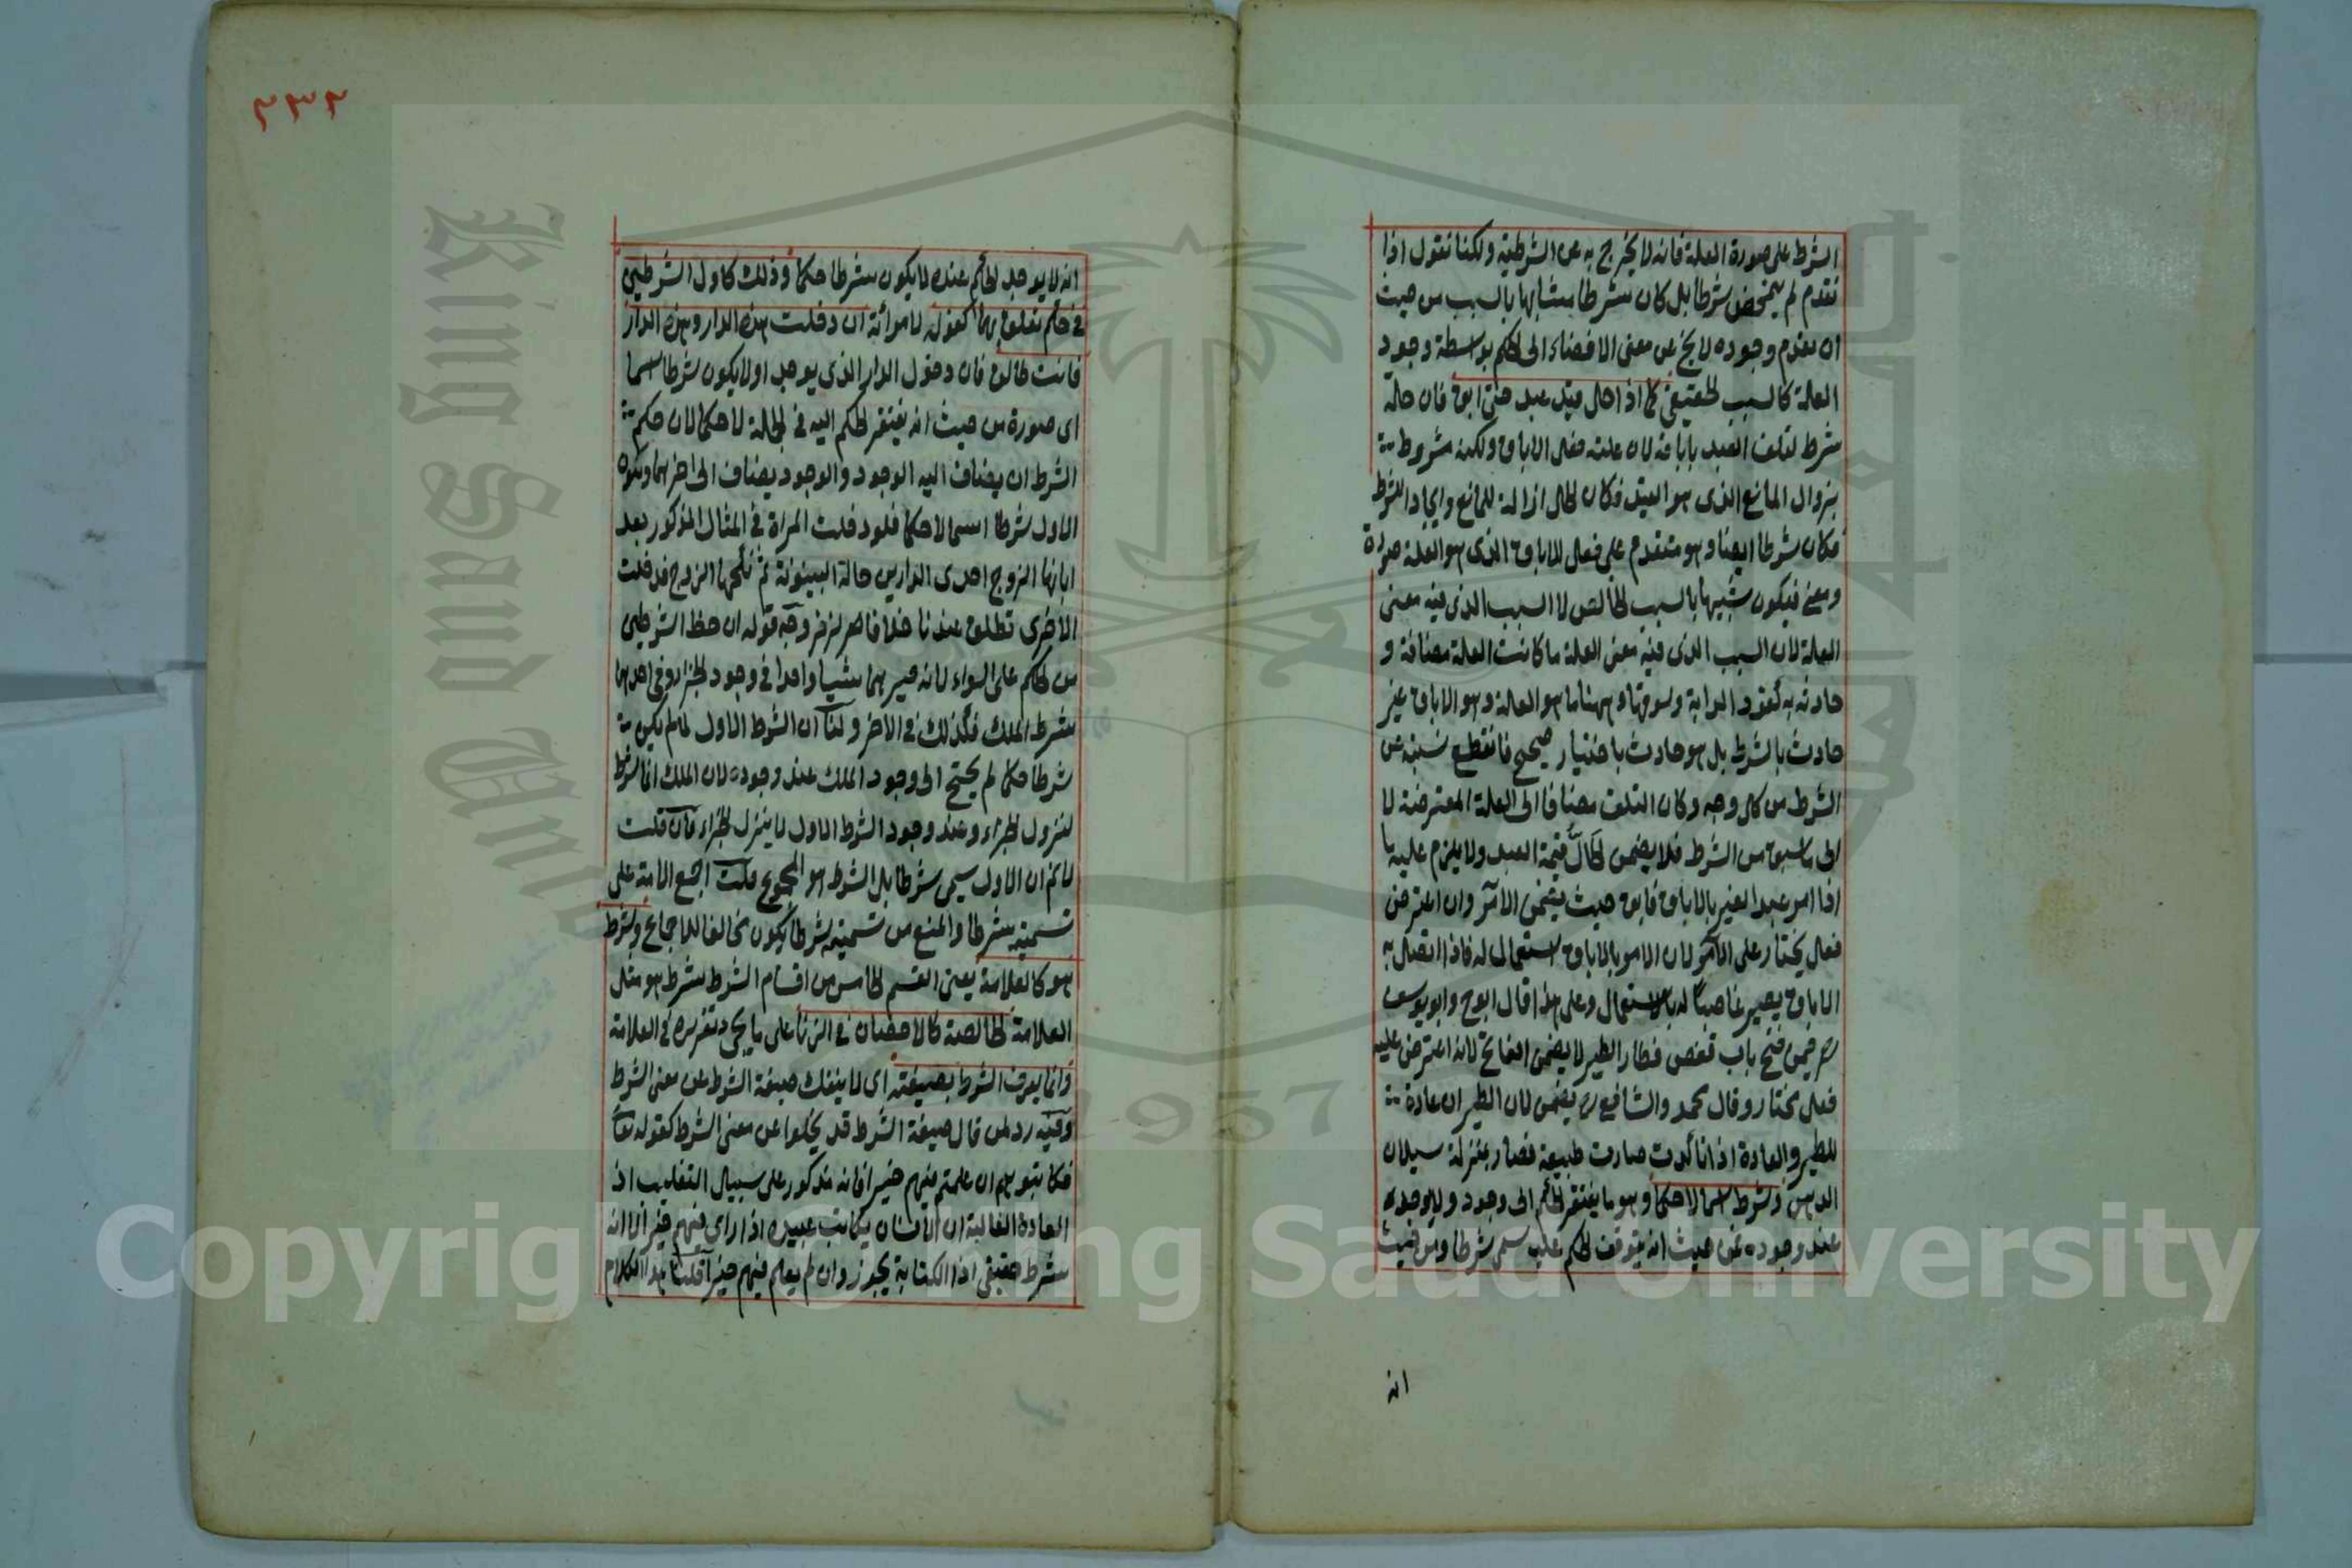 الشرط على صورة العلة فانه لا يخرج به عن الشرطية ولكنا نقول اذا
تقدم لم يتمحض شرطا بل كان شرطا مشابها بالسبب من حيث
ان تقدم وجوده لا يخ عن معنى الافضاء الى الحكم بواسطة وجود
العلة كالسبب الحقيقي كما اذا حل قيد عبد حتى ابق فان حله
شرط لتلف العبد باباقه لان علته فعل الاباق ولكنه مشروط
بزوال المانع الذى هو القيد فكان الحل ازالة للمانع وايجادا للشرط
فكان شرطا ايضا وهو متقدم على فعل الاباق الذى هو العلة صورة
ومعنى فيكون شبيها بالسبب الخالص لا السبب الذى فيه معنى
العلة لان السبب الذى فيه معنى العلة ما كانت العلة مضافة و
حادثه به كقود الدابة وسوقها وههنا ما هو العلة وهو الاباق غير
حادث بالشرط بل هو حادث باختيار صحيح فانقطع نسبته عن
الشرط من كل وجه وكان التلف مضافا الى العلة المعترضة لا
الى ما سبق من الشرط فلا يضمن الحال قيمة العبد ولا يلزم عليه ما
اذا امر عبد الغير بالاباق فابق حيث يضمن الآمر وان اعترض
فعل مختار على الآمر لان الامر بالاباق استعمال له فاذا اتصل به
الاباق يصير غاصبا له بالاستعمال وعلى هذا قال ابو ح وابو يوسف
فيمن فتح باب قفص فطار الطير لا يضمن الفاتح لانه اعترض عليه
فعل مختار وقال محمد والشافعى يضمن لان الطيران عادة
للطير والعادة اذا تأكدت صارت طبيعة فصار بمنزلة سيلان
الدهن وشرط اسما لا حكما وهو ما يفتقر الحكم الى وجوده ولا يوجد
عند وجوده فمن حيث انه يتوقف الحكم عليه سمى شرطا ومن حيث
انه
٢٣٢
انه لا يوجد الحكم عنده لا يكون شرطا حكما وذلك كاول الشرطين
فى حكم تعلق بهما كقوله لامرأته ان دخلت هذه الدار وهذه الدار
فانت طالق فان دخول الدار الذى يوجد اولا يكون شرطا اسما
اى صورة من حيث انه يفتقر الحكم اليه فى الجملة لا حكما لان حكم
الشرط ان يضاف اليه الوجود والوجود يضاف الى اخرهما
الاول شرطا اسما لا حكما فلو دخلت المرأة فى المثال المذكور بعد
ابانها الزوج احدى الدارين حالة البينونة ثم نكحها الزوج فدخلت
الاخرى تطلق عندنا خلافا لزفر وجه قوله ان حظ الشرطين
من الحكم على السواء لانه صيرهما شيئا واحدا فى وجود الجزاء وفى احدهما
شرط الملك فكذلك فى الاخر ولنا ان الشرط الاول لما لم يكن
شرطا حكما لم يحتج الى وجود الملك عند وجوده لان الملك انما شرط
لنزول الجزاء وعند وجود الشرط الاول لا ينزل الجزاء فان قلت
لا نم ان الاول سمى شرطا بل الشرط هو المجموع قلت اجمع الائمة على
تسميته شرطا والمنع من تسميته شرطا يكون مخالفا للاجماع وشرط
هو كالعلامة يعنى القسم الخامس من اقسام الشرط شرط هو مثل
العلامة الخالصة كالاحصان فى الزنا على ما يجئ تقريره فى العلامة
وانما يعرف الشرط بصيغته اى لا ينفك صيغة الشرط عن معنى الشرط
وفيه رد لمن قال صيغة الشرط قد يخلوا عن معنى الشرط كقوله تعا
فكاتبوهم ان علمتم فيهم خيرا فانه مذكور على سبيل التغليب اذ
العادة الغالبة ان الانسان يكاتب عبيده اذا راى فيهم خيرا لا انه
شرط حقيقى اذ الكتابة يجوز وان لم يعلم فيهم خيرا قلنا هذا الكلام
Copyright © King Saud University
King Saud
1957